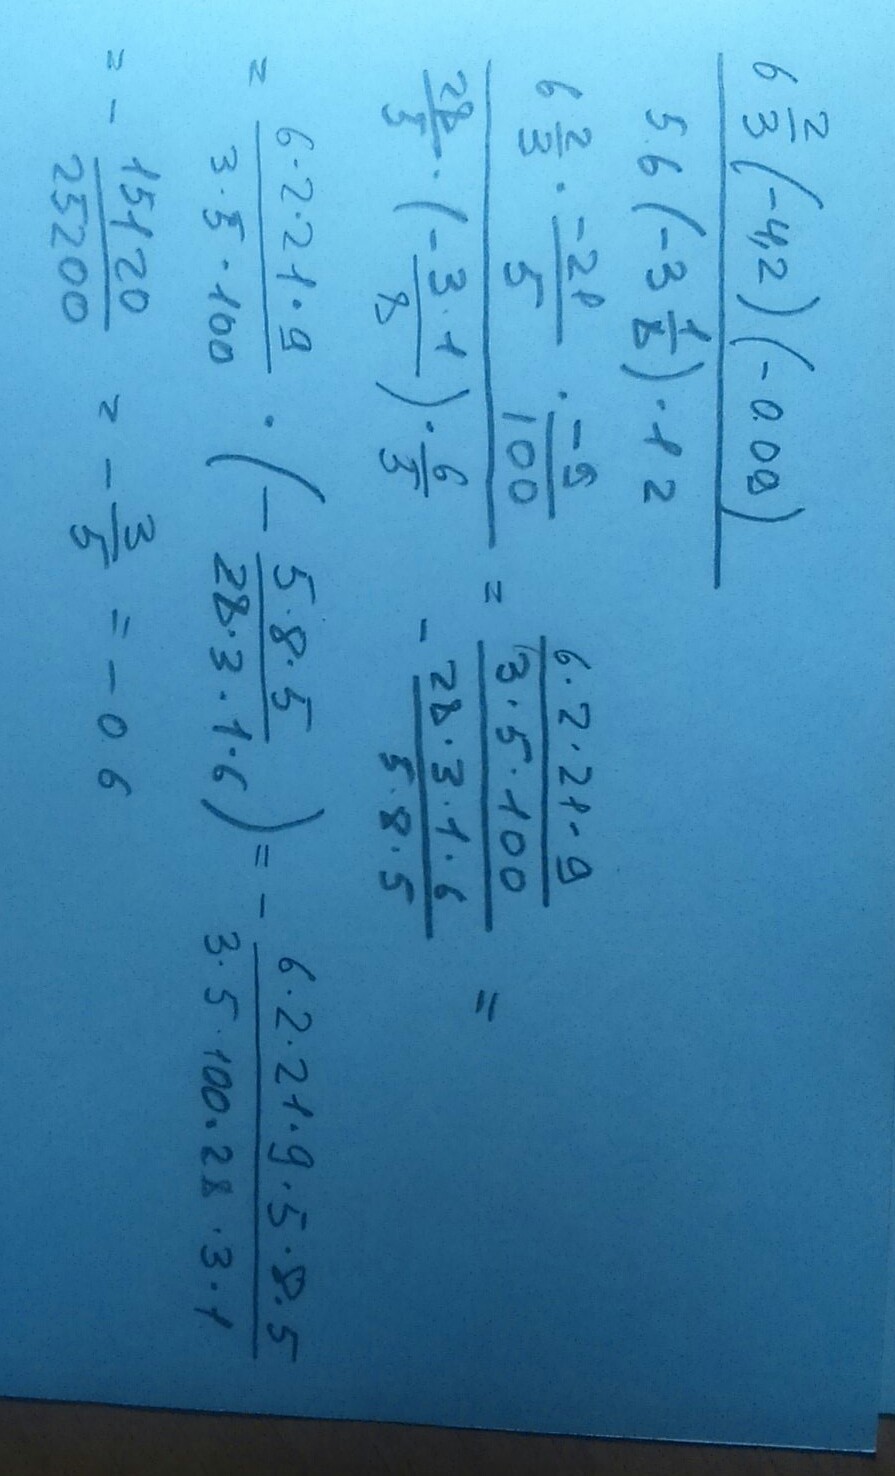 6 2/3 (-4,2)(-0.09)
5.6 (-3 1/8) · 1 2
6 2/3 · -21/5 · -9/100
28/5 · (-3·1/8) · 6/5
=
6·2·21·9
3·5·100
- 28·3·1·6
5·8·5
=
= 6·2·21·9/3·5·100 · (- 5·8·5/28·3·1·6) = - 6·2·21·9·5·8·5/3·5·100·28·3·1
= - 15120/25200 = - 3/5 = - 0 6